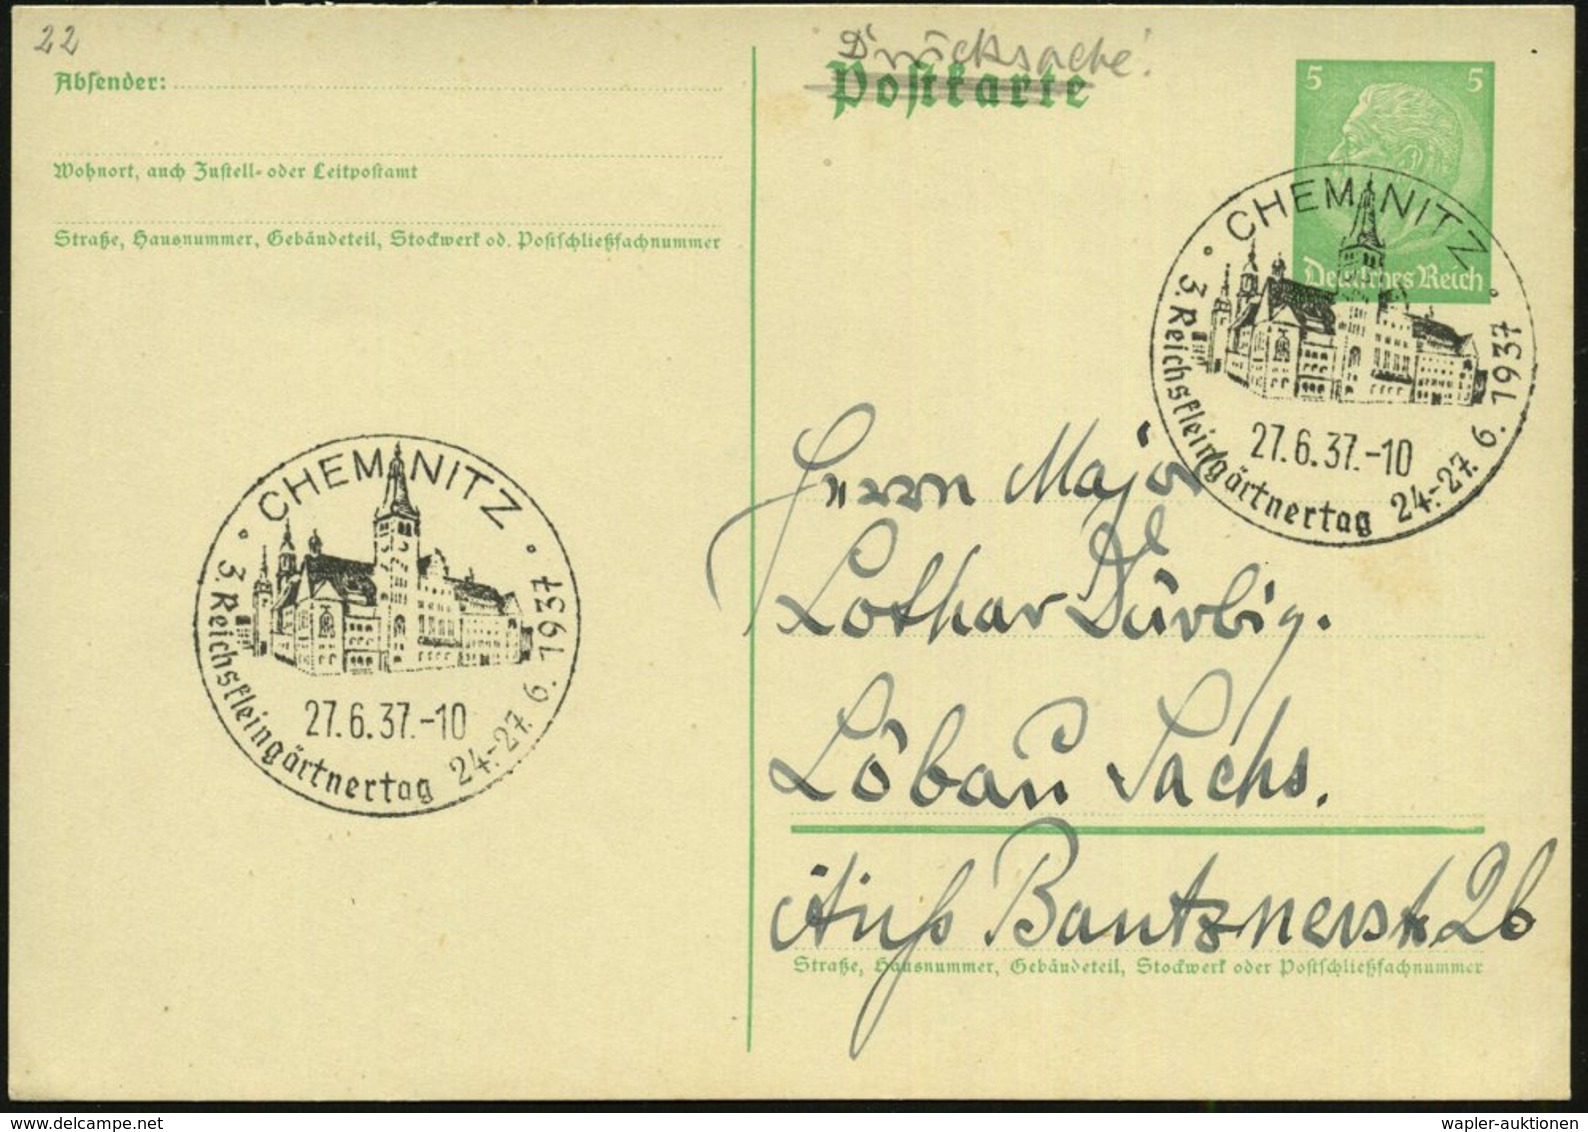 22
Absender:
Wohnort, auch Zustell- oder Leitpostamt
Straße, Hausnummer, Gebäudeteil, Stockwerk od. Postschließfachnummer
Drucksache!
Postkarte
5 5
Deutsches Reich
CHEMNITZ
3. Reichskleingärtnertag 24.-27. 6. 1937
27.6.37.-10
CHEMNITZ
3. Reichskleingärtnertag 24.-27. 6. 1937
27.6.37.-10
Herrn Major
Lothar Dürbig.
Löbau Sachs.
Äuß Bautznerstr 26
Straße, Hausnummer, Gebäudeteil, Stockwerk oder Postschließfachnummer
www.delcampe.net
wapler-auktionen